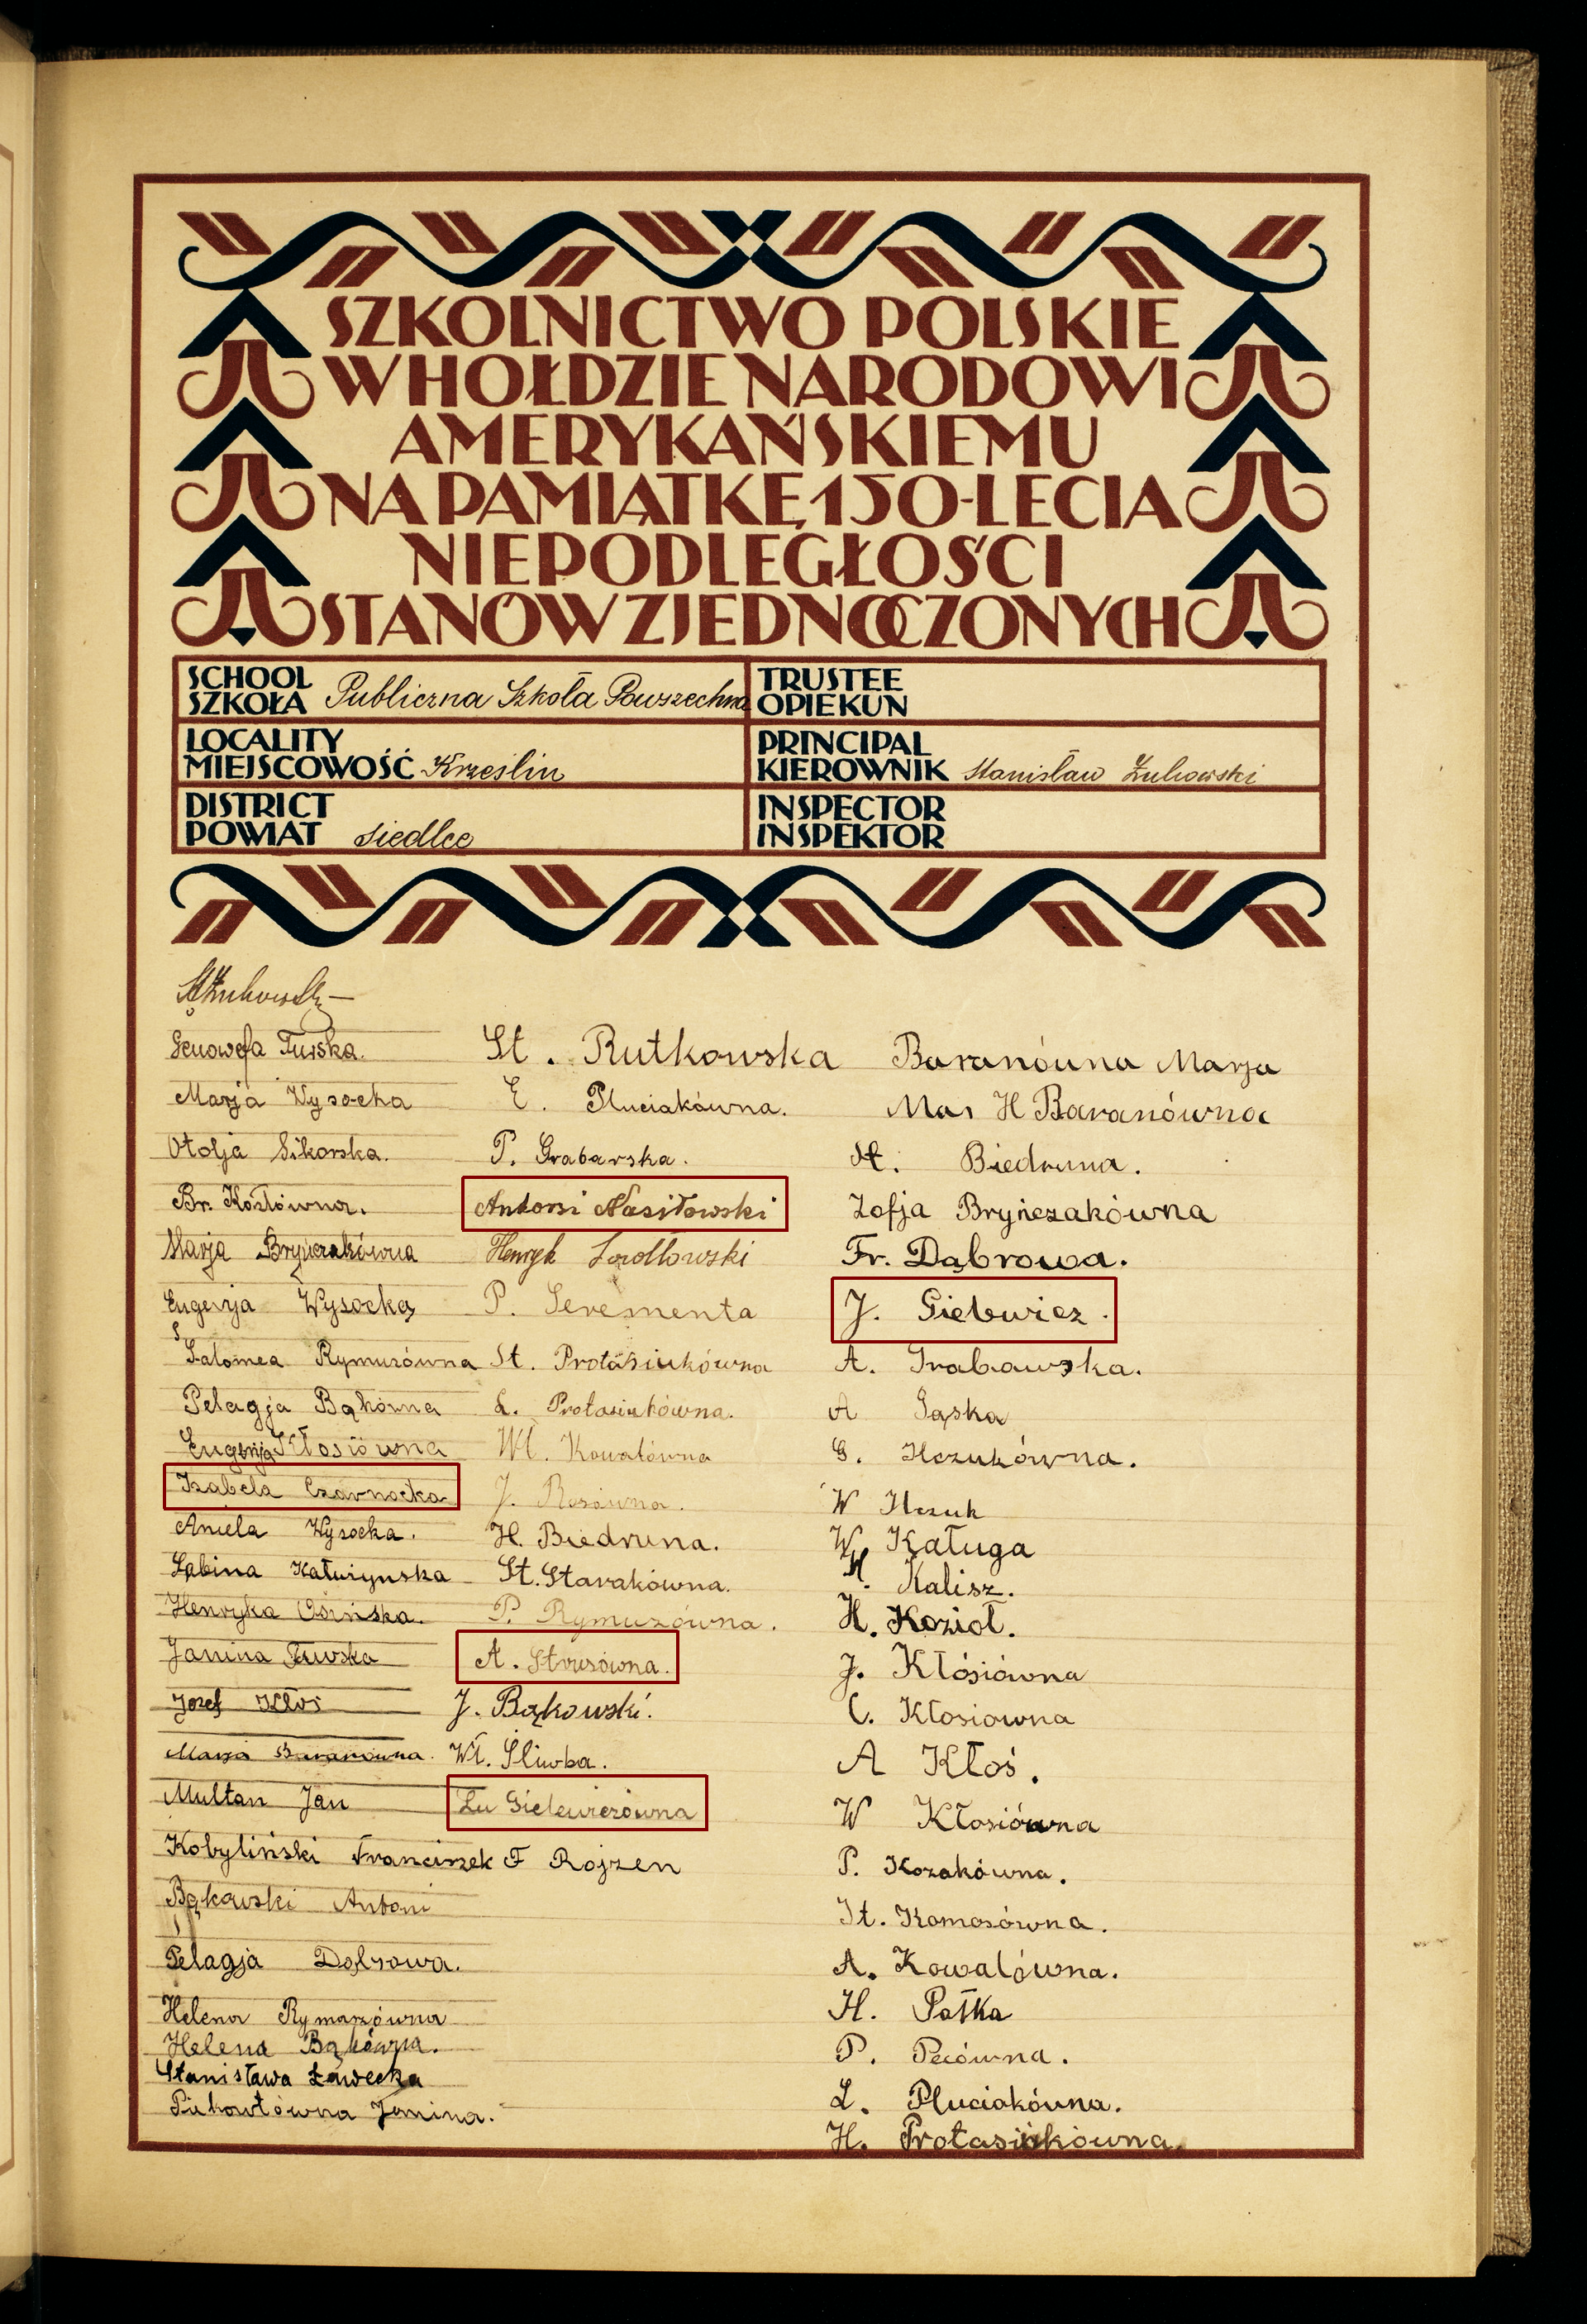 SZKOLNICTWO POLSKIE
W HOŁDZIE NARODOWI
AMERYKAŃSKIEMU
NA PAMIĄTKĘ 150-LECIA
NIEPODLEGŁOŚCI
STANÓW ZJEDNOCZONYCH
SCHOOL
SZKOŁA Publiczna Szkoła Powszechna
TRUSTEE
OPIEKUN
LOCALITY
MIEJSCOWOŚĆ Krześlin
PRINCIPAL
KIEROWNIK Stanisław Żukowski
DISTRICT
POWIAT Siedlce
INSPECTOR
INSPEKTOR
StŻukowski
Genowefa Turska.
Marja Wysocka
Otolja Sikorska.
Br. Kosłówna.
Marja Bryńczakówna
Eugenja Wysocka
Salomea Rymuzówna
Pelagja Bąkówna
Eugenja Kłosiówna
Izabela Czarnocka
Aniela Wysocka.
Sabina Katurynska
Henryka Osińska.
Janina Turska
Józef Kłos
Marja Baranówna.
Multan Jan
Kobyliński Franciszek
Bąkowski Antoni
Pelagja Dąbrowa.
Helena Rymazówna
Helena Bąkówna.
Stanisława Ławecka
Janina.
St. Rutkowska
E. Pluciakówna.
P. Grabarska.
Antoni Nasiłowski
Henryk
P. Serementa
St. Protasiukówna
L. Protasiukówna.
Wł. Kowalówna
J. Rosówna.
H. Biedruna.
St. Starakówna.
P. Rymuzówna.
A. Strusówna.
J. Bąkowski.
Wł. Śliwka.
Lu Gielewiczówna
F Rojzen
Baranówna Marja
Mar H Baranówna
St. Biedruna.
Zofja Bryńczakówna
Fr. Dąbrowa.
J. Gielewicz.
A. Grabowska.
A Gąska
G. Ilczukówna.
W Ilczuk
W Kaługa
Kalisz.
H. Kozioł.
J. Kłósiówna
C. Kłosiowna
A Kłoś.
W Kłosiówna
P. Kozakówna.
St. Komosówna.
A. Kowalówna.
H. Pałka
P. Pecówna.
L. Pluciakówna.
H. Protasiukówna.